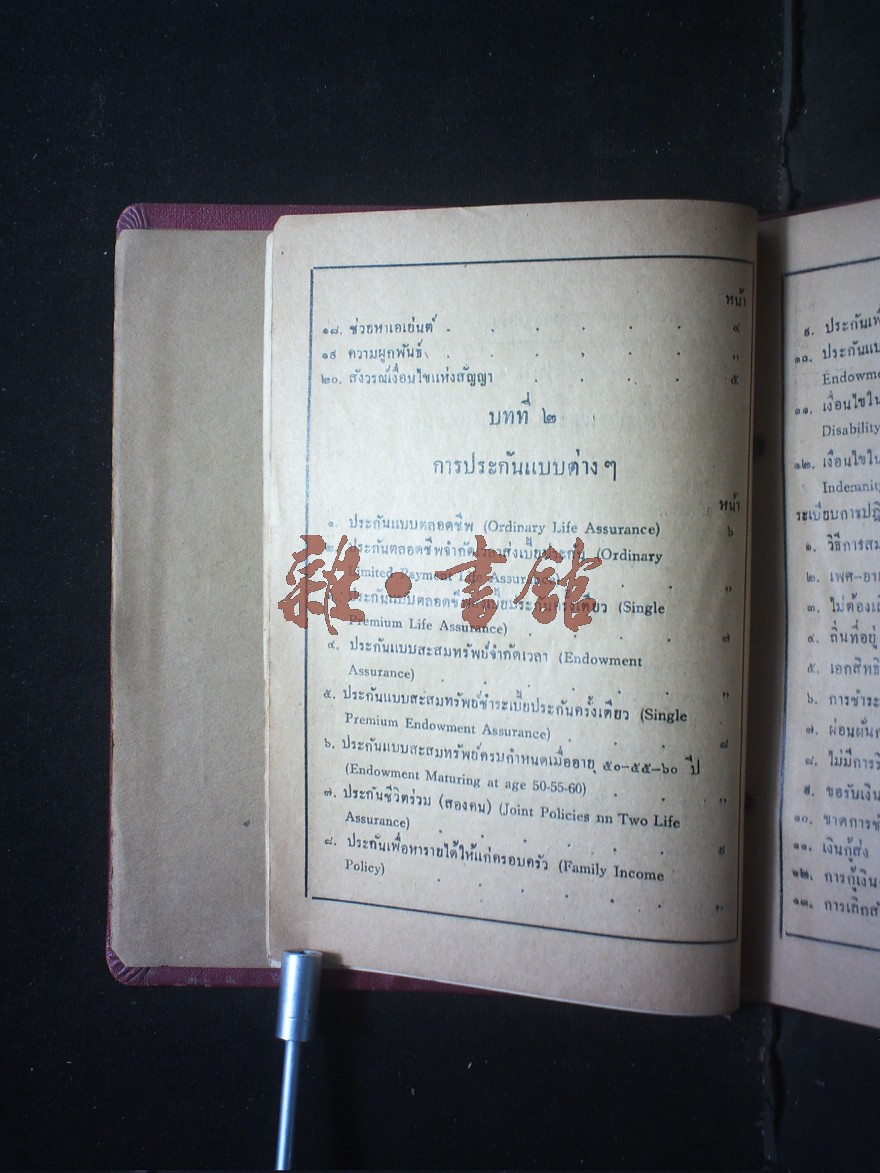 หน้า
๑๘. ช่วยหาเอเย่นต์ . . . . . . ๔
๑๙ ความผูกพันธ์ . . . . . . ,,
๒๐. สังวรณ์เงื่อนไขแห่งสัญญา . . . . ๕
บทที่ ๒
การประกันแบบต่าง ๆ
หน้า
๑. ประกันแบบตลอดชีพ (Ordinary Life Assurance) ๖
๒. ประกันตลอดชีพจำกัดเวลาส่งเบี้ยประกัน (Ordinary
Limited Payment Life Assurance) . . ,,
ประกันแบบตลอดชีพส่งเบี้ยประกันครั้งเดียว (Single
Premium Life Assurance) . . . . ๗
๔. ประกันแบบสะสมทรัพย์จำกัดเวลา (Endowment
Assurance) . . . . . . ,,
๕. ประกันแบบสะสมทรัพย์ชำระเบี้ยประกันครั้งเดียว (Single
Premium Endowment Assurance) . . . ๘
๖. ประกันแบบสะสมทรัพย์ครบกำหนดเมื่ออายุ ๕๐–๕๕–๖๐ ปี
(Endowment Maturing at age 50-55-60) . . ,,
๗. ประกันชีวิตร่วม (สองคน) (Joint Policies nn Two Life
Assurance) . . . . . . ๙
๘. ประกันเพื่อหารายได้ให้แก่ครอบครัว (Family Income
Policy) . . . . . . ,,
雜·書館
๙. ประกันเพื่
๑๐. ประกันแบ
Endowme
๑๑. เงื่อนไขใน
Disability
๑๒. เงื่อนไขใน
Indemnity
ระเบียบการปฏิ
๑. วิธีการสม
๒. เพศ–อาย
๓. ไม่ต้องเ
๔. ถิ่นที่อยู่
๕. เอกสิทธิ
๖. การชำระ
๗. ผ่อนผัน
๘. ไม่มีการ
๙. ขอรับเงิน
๑๐. ขาดการช
๑๑. เงินกู้ส่ง
๑๒. การกู้เงิน
๑๓. การเลิกสั